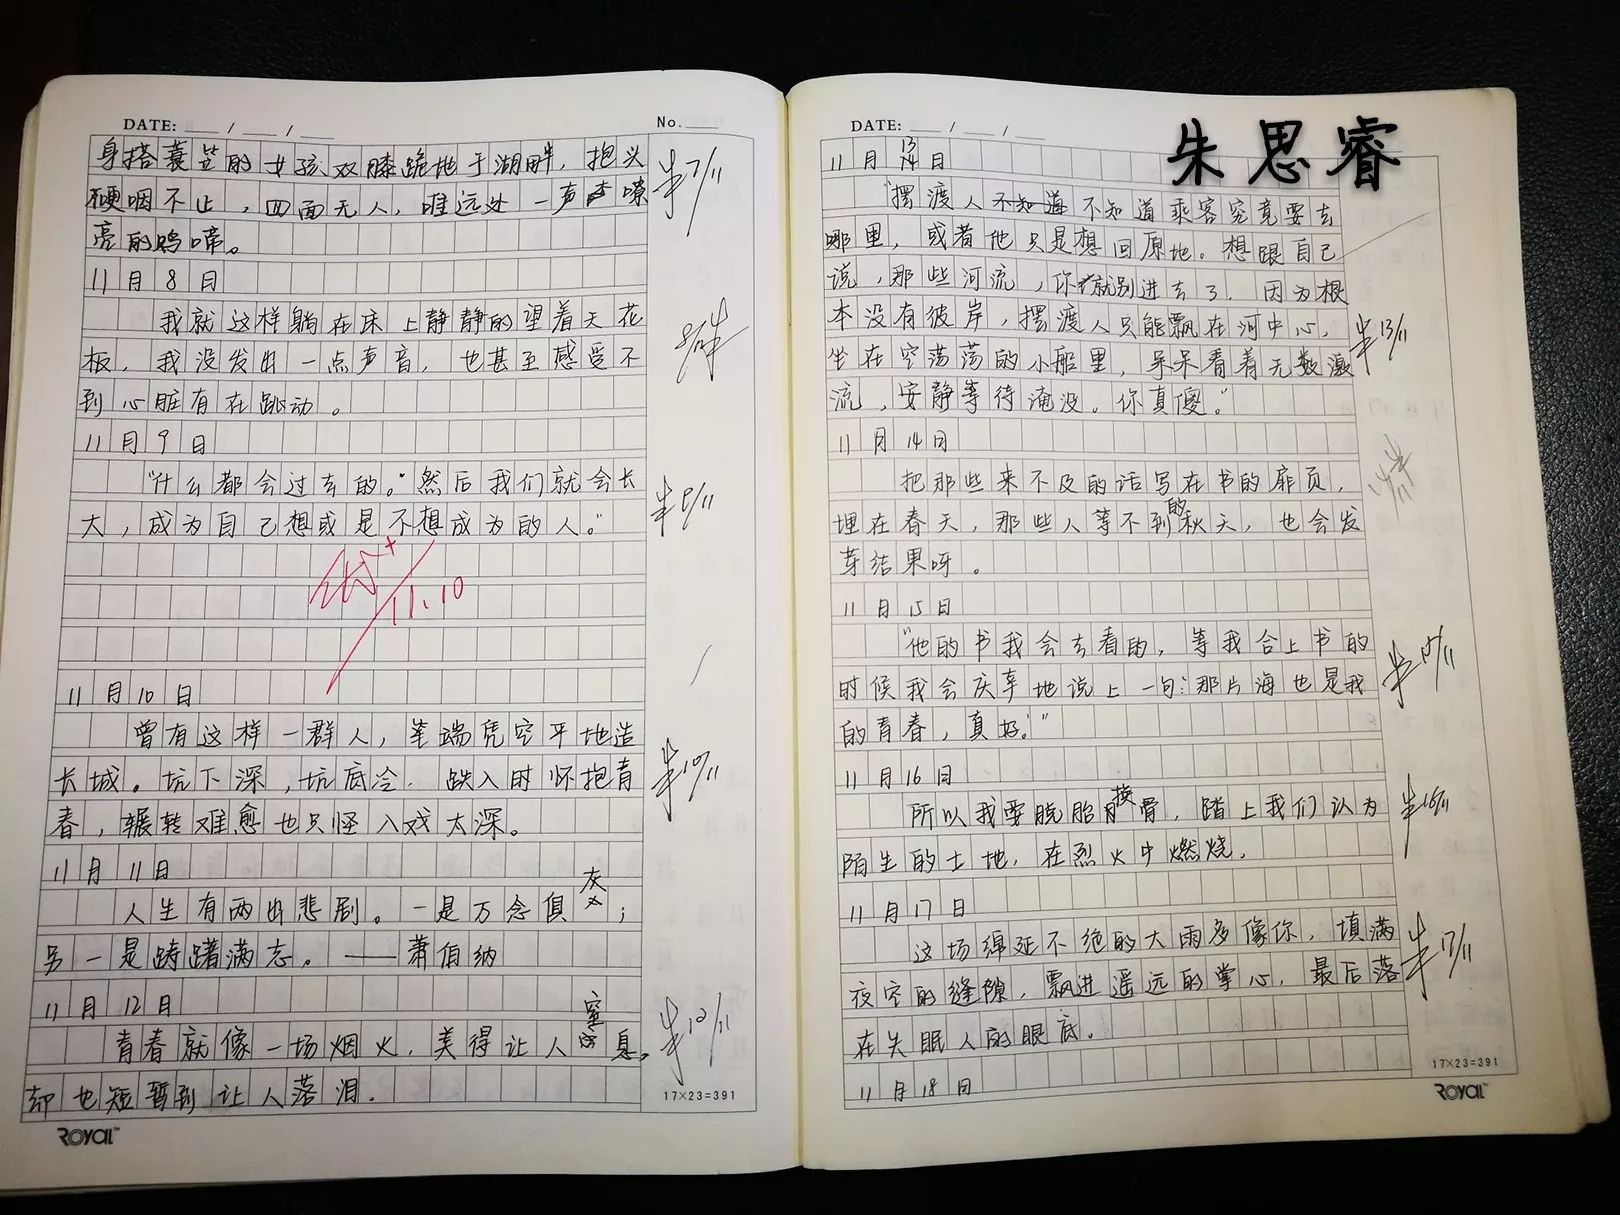 DATE: / /
No.
身搭蓑笠的女孩双膝跪地于湖畔，抱头
哽咽不止，四面无人，唯远处一声嘹
亮的鸡啼。
11月8日
我就这样躺在床上静静的望着天花
板，我没发出一点声音，也甚至感受不
到心脏有在跳动。
11月9日
“什么都会过去的。”然后我们就会长
大，成为自己想或是不想成为的人。”
11.10
11月10日
曾有这样一群人，笔端凭空平地造
长城。坑下深，坑底冷．跌入时怀抱青
春，辗转难愈也只怪入戏太深。
11月11日
人生有两出悲剧。一是万念俱灰；
另一是踌躇满志。——萧伯纳
11月12日
青春就像一场烟火，美得让人窒息，
却也短暂到让人落泪．
17×23=391
ROYAL™
DATE: / /
朱思睿
11月13日
“摆渡人不知道不知道乘客究竟要去
哪里，或者他只是想回原地。想跟自己
说，那些河流，你就别进去了．因为根
本没有彼岸，摆渡人只能飘在河中心，
坐在空荡荡的小船里，呆呆看着无数激
流，安静等待淹没。你真傻。”
11月14日
把那些来不及的话写在书的扉页，
埋在春天，那些人等不到的秋天，也会发
芽结果呀。
11月15日
“他的书我会去看的，等我合上书的
时候我会庆幸地说上一句：‘那片海也是我
的青春，真好。’”
11月16日
所以我要脱胎换骨，踏上我们认为
陌生的土地，在烈火中燃烧．
11月17日
这场绵延不绝的大雨多像你，填满
夜空的缝隙，飘进遥远的掌心，最后落
在失眠人的眼底．
11月18日
17×23=391
ROYAL™